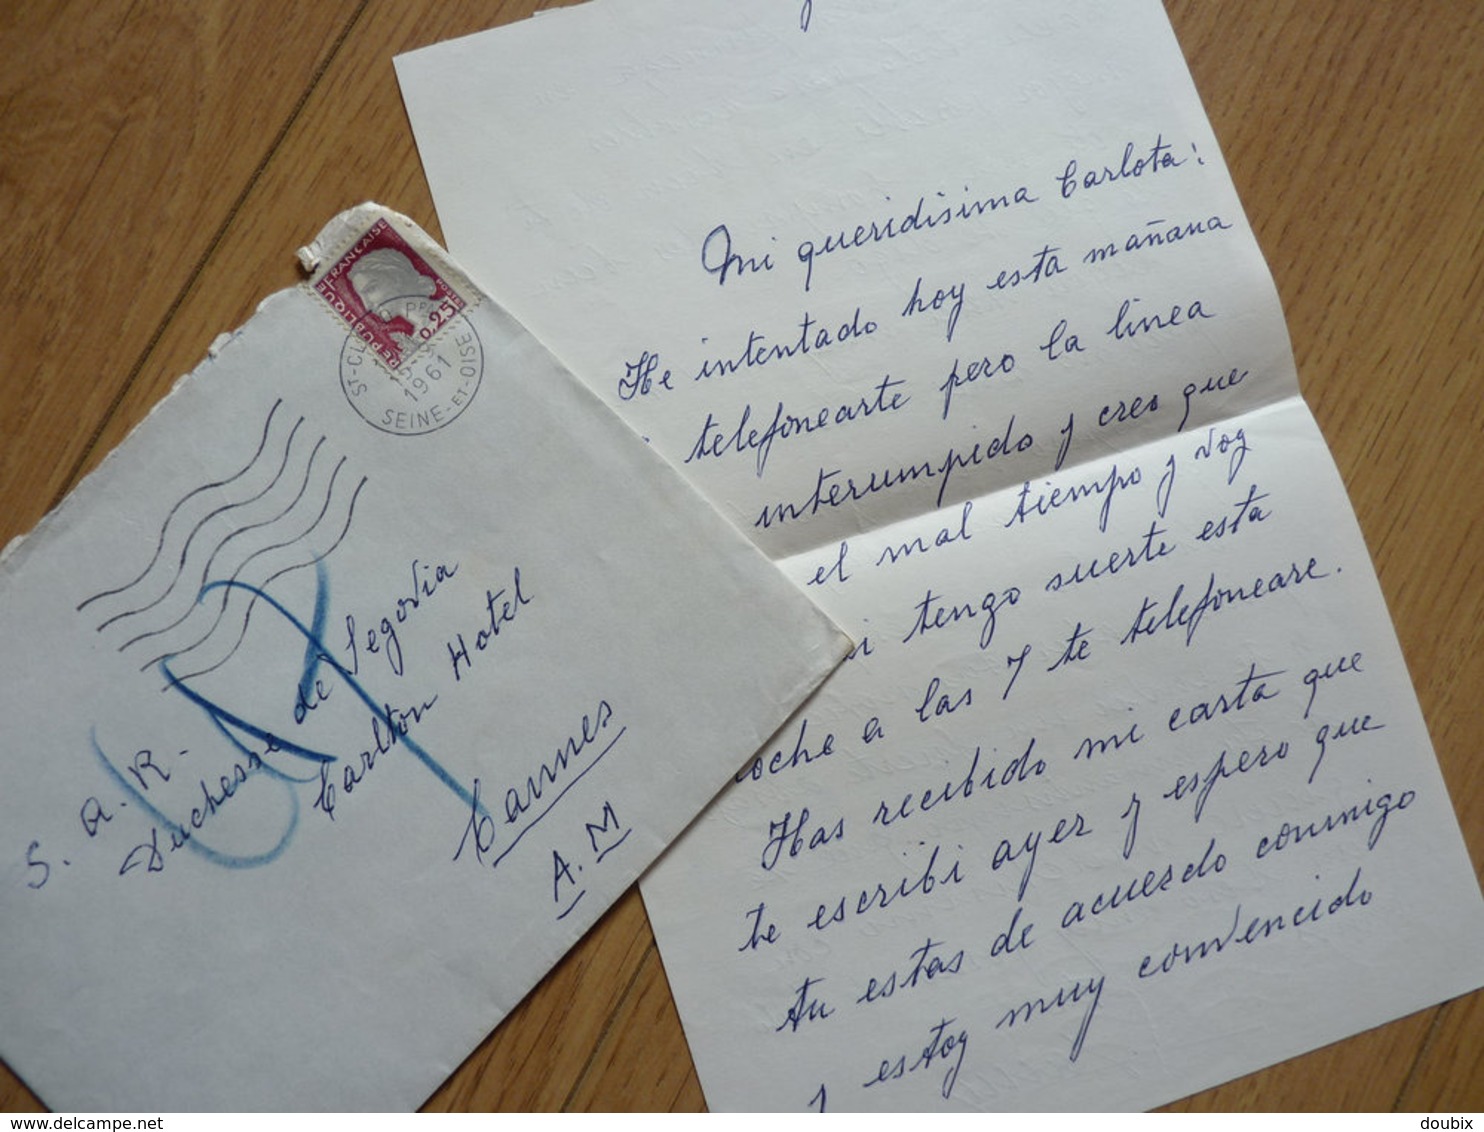 Mi queridisima Carlota:
He intentado hoy esta mañana
telefonearte pero la linea
interumpido y creo que
el mal tiempo y voy
si tengo suerte esta
noche a las 7 te telefoneare.
Has recibido mi carta que
te escribi ayer y espero que
tu estas de acuerdo conmigo
y estoy muy convencido
REPUBLIQUE FRANÇAISE
POSTES
0,25
SEINE-ET-OISE
1961
S. A. R.
Duchesse de Segovia
Carlton Hotel
Cannes
A. M
www.delcampe.net
doubix